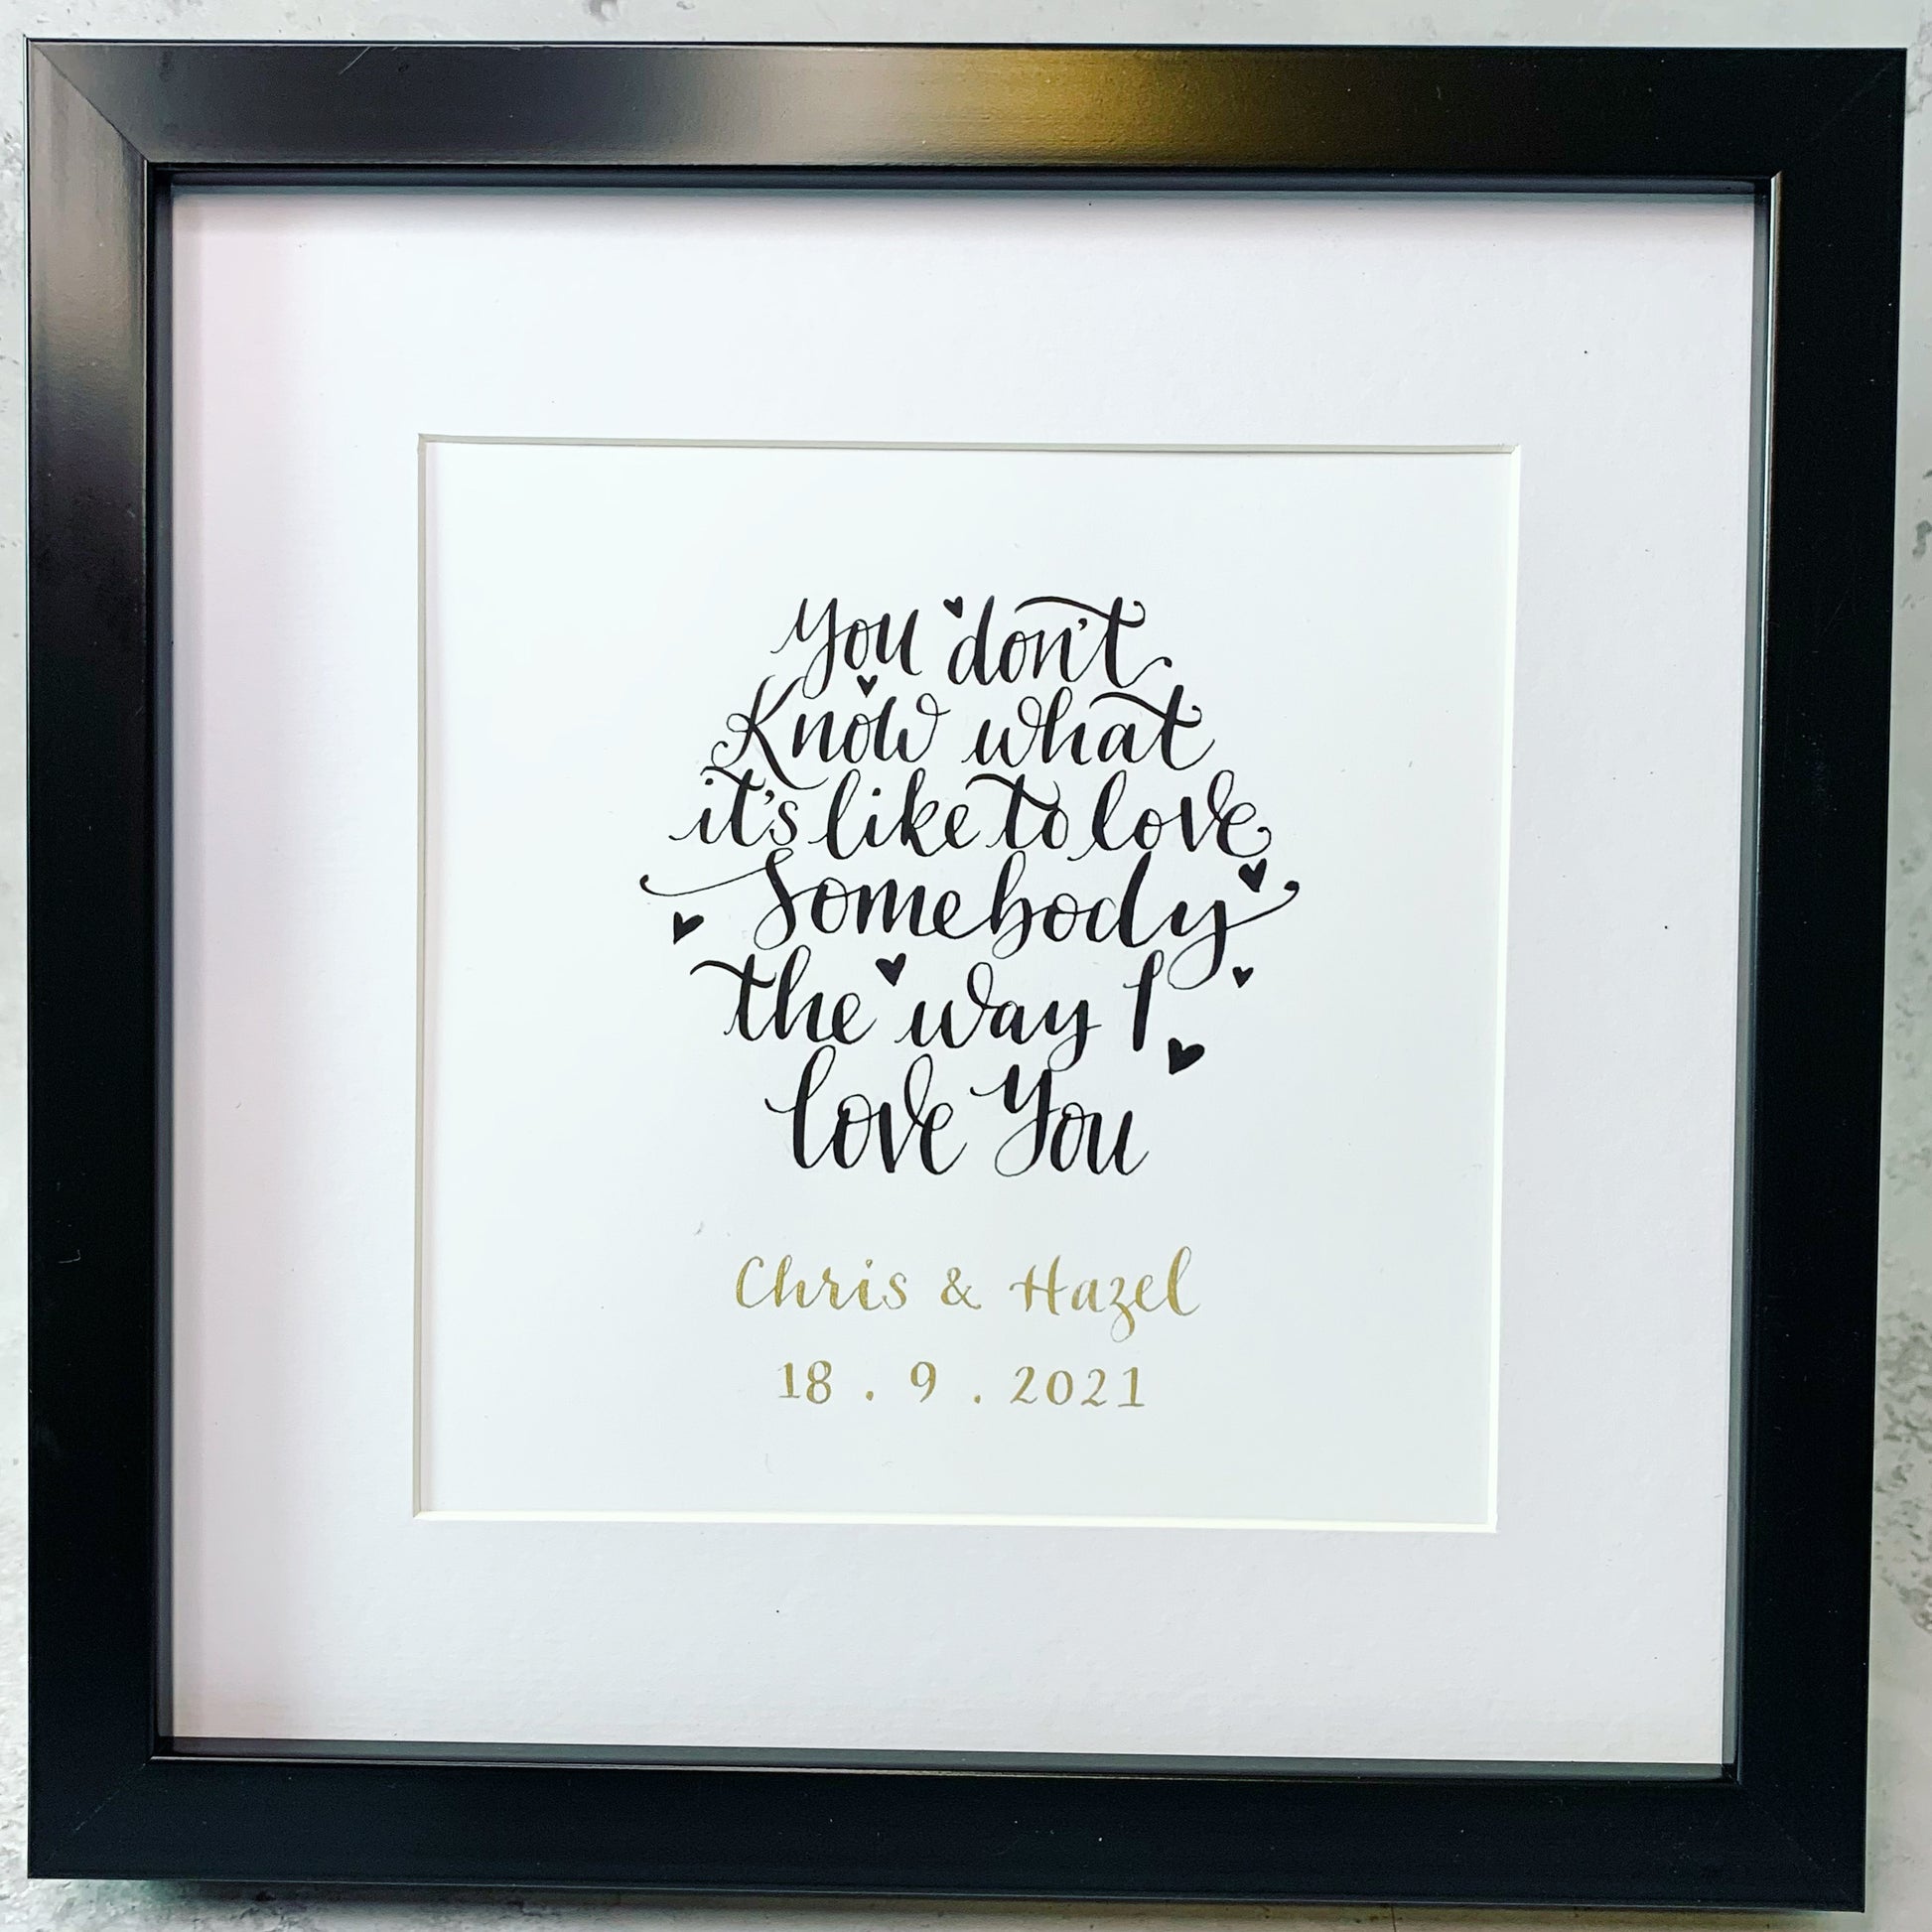 You don't
Know what
it's like to love
Somebody
the way I
love You
Chris & Hazel
18 . 9 . 2021